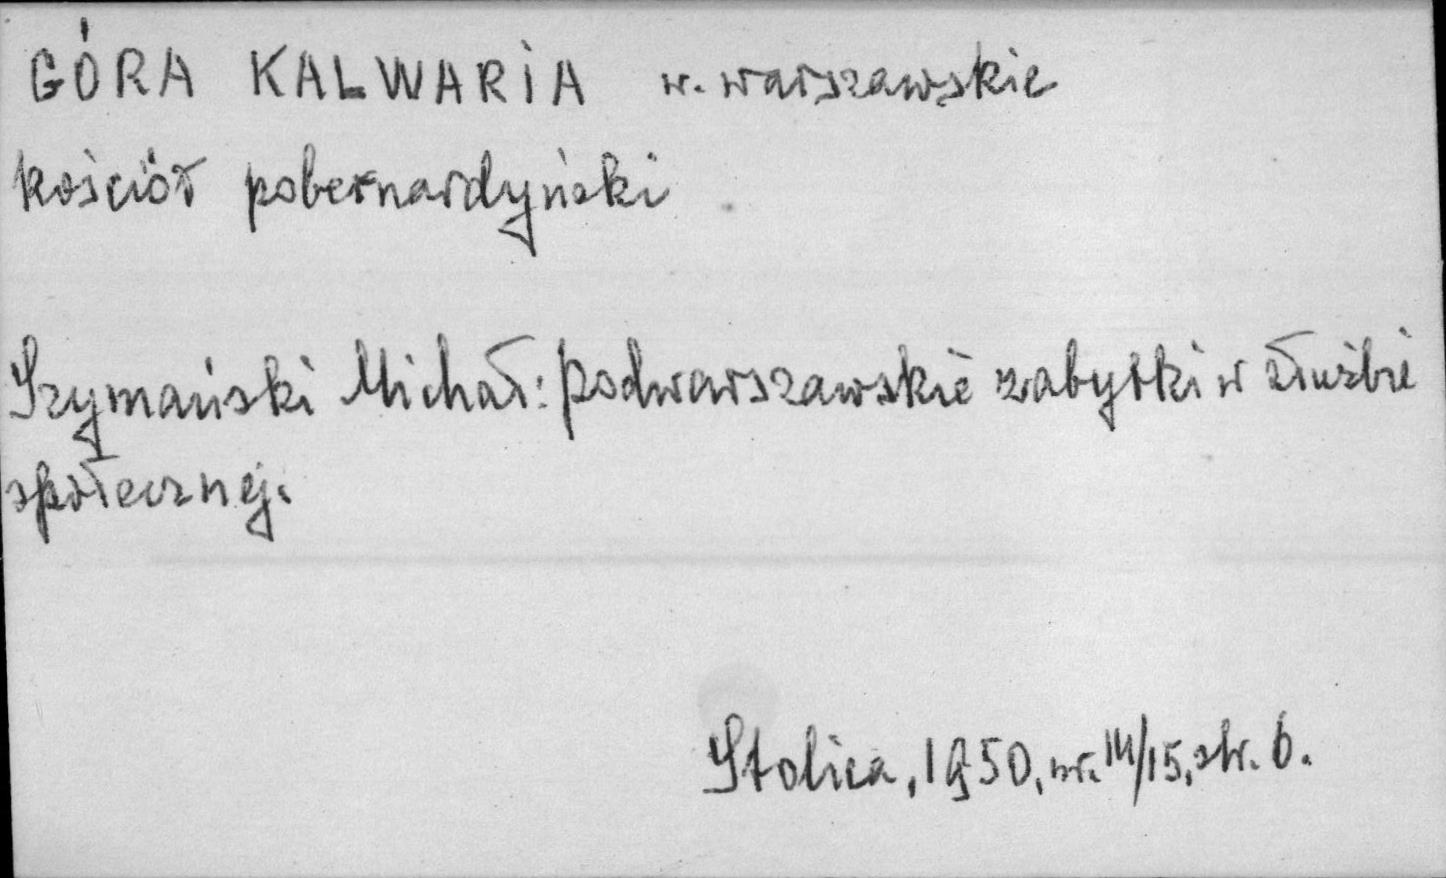 GÓRA KALWARIA w. warszawskie
kościół pobernardyński
Szymański Michał: Podwarszawskie zabytki w służbie
społecznej.
Stolica, 1950, nr. 14/15, str. 6.